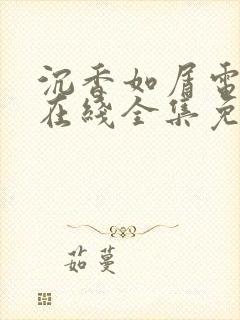 沉香如屑電
在綫全集免
茹蔓